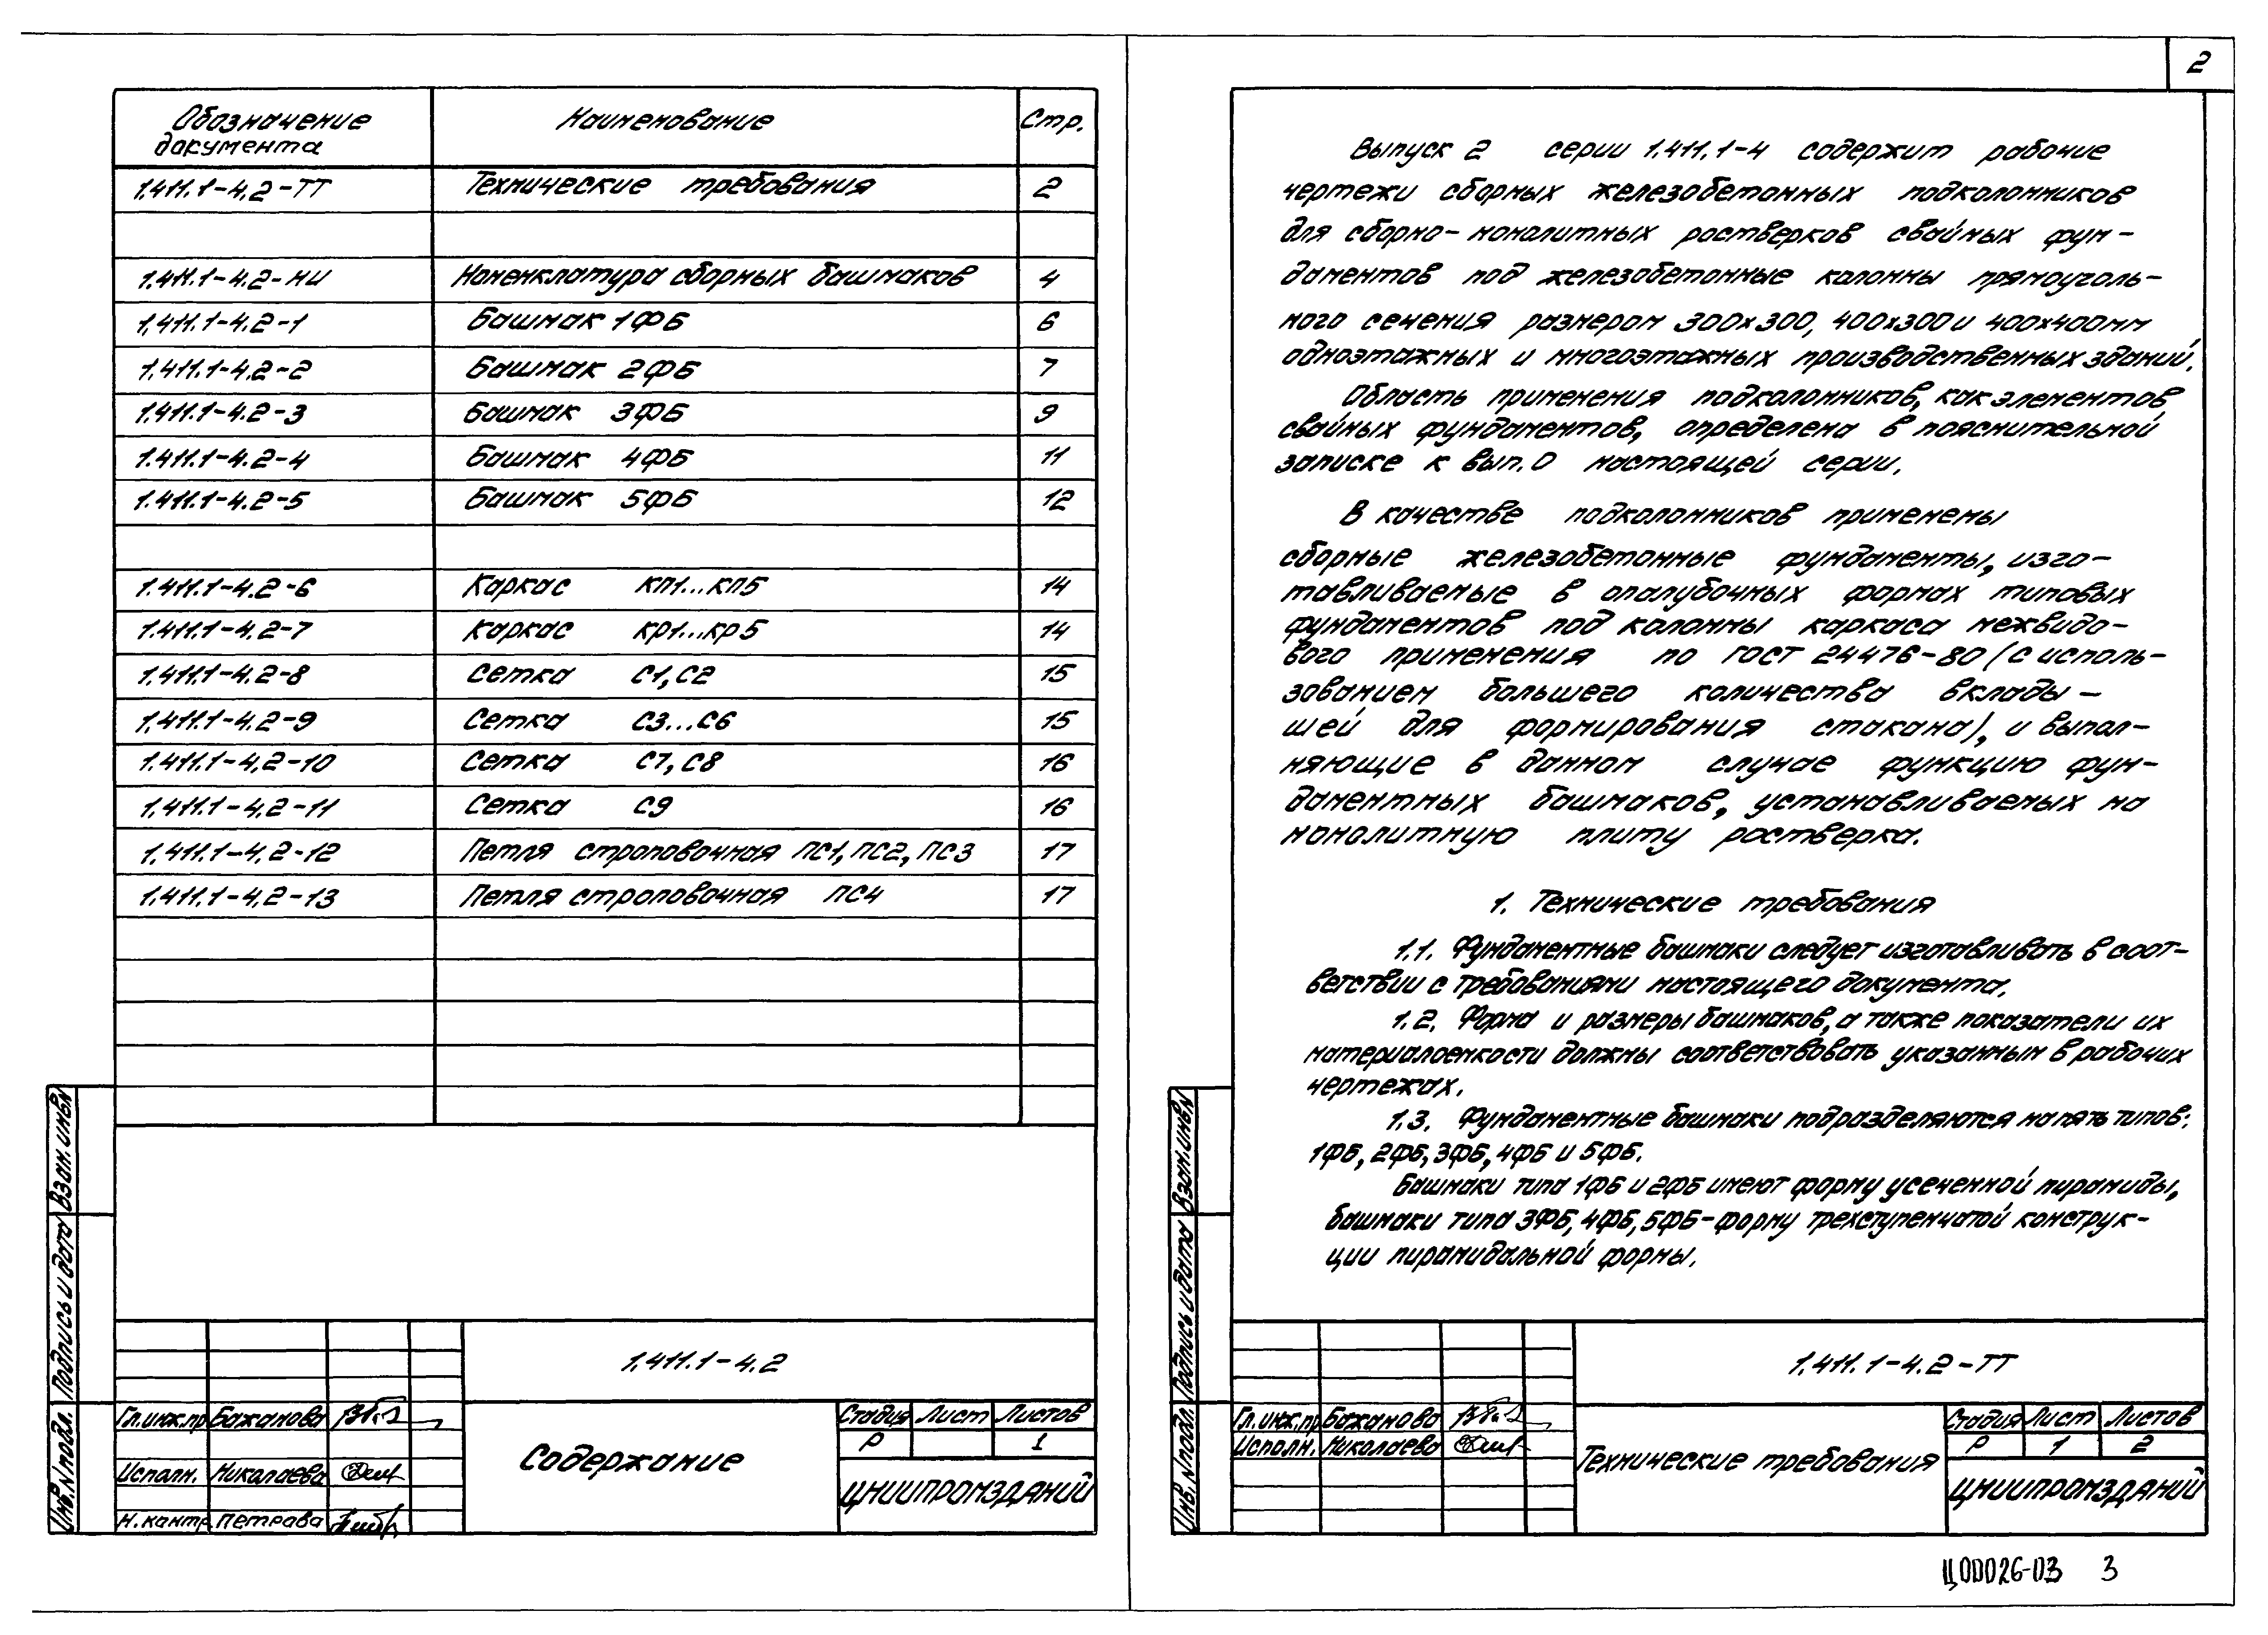 Обозначение документа Наименование Стр.
1.411.1-4.2-ТТ Технические требования 2
1.411.1-4.2-НИ Номенклатура сборных башмаков 4
1.411.1-4.2-1 Башмак 1ФБ 6
1.411.1-4.2-2 Башмак 2ФБ 7
1.411.1-4.2-3 Башмак 3ФБ 9
1.411.1-4.2-4 Башмак 4ФБ 11
1.411.1-4.2-5 Башмак 5ФБ 12
1.411.1-4.2-6 Каркас КП1...КП5 14
1.411.1-4.2-7 Каркас КР1...КР5 14
1.411.1-4.2-8 Сетка С1, С2 15
1.411.1-4.2-9 Сетка С3...С6 15
1.411.1-4.2-10 Сетка С7, С8 16
1.411.1-4.2-11 Сетка С9 16
1.411.1-4.2-12 Петля строповочная ПС1, ПС2, ПС3 17
1.411.1-4.2-13 Петля строповочная ПС4 17
Взам. инв N
Подпись и дата
Инв. N подл.
1.411.1-4.2
Гл.инж.пр Бажанова
Исполн. Николаева
Н. контр Петрова
Содержание
Стадия Лист Листов
Р 1
ЦНИИПРОМЗДАНИЙ
2
Выпуск 2 серии 1.411.1-4 содержит рабочие
чертежи сборных железобетонных подколонников
для сборно-монолитных ростверков свайных фун-
даментов под железобетонные колонны прямоуголь-
ного сечения размером 300х300, 400х300 и 400х400мм
одноэтажных и многоэтажных производственных зданий.
Область применения подколонников, как элементов
свайных фундаментов, определена в пояснительной
записке к вып. 0 настоящей серии.
В качестве подколонников применены
сборные железобетонные фундаменты, изго-
тавливаемые в опалубочных формах типовых
фундаментов под колонны каркаса межвидо-
вого применения по ГОСТ 24476-80 (с исполь-
зованием большего количества вклады-
шей для формирования стакана), и выпол-
няющие в данном случае функцию фун-
даментных башмаков, устанавливаемых на
монолитную плиту ростверка.
1. Технические требования
1.1. Фундаментные башмаки следует изготавливать в соот-
ветствии с требованиями настоящего документа.
1.2. Форма и размеры башмаков, а также показатели их
материалоемкости должны соответствовать указанным в рабочих
чертежах.
1.3. Фундаментные башмаки подразделяются на пять типов:
1ФБ, 2ФБ, 3ФБ, 4ФБ и 5ФБ.
Башмаки типа 1ФБ и 2ФБ имеют форму усеченной пирамиды,
башмаки типа 3ФБ, 4ФБ, 5ФБ-форму трехступенчатой конструк-
ции пирамидальной формы.
Взам. инв N
Подпись и дата
Инв. N подл.
1.411.1-4.2-ТТ
Гл.инж.пр Бажанова
Исполн. Николаева
Технические требования
Стадия Лист Листов
Р 1 2
ЦНИИПРОМЗДАНИЙ
Ц00026-03 3